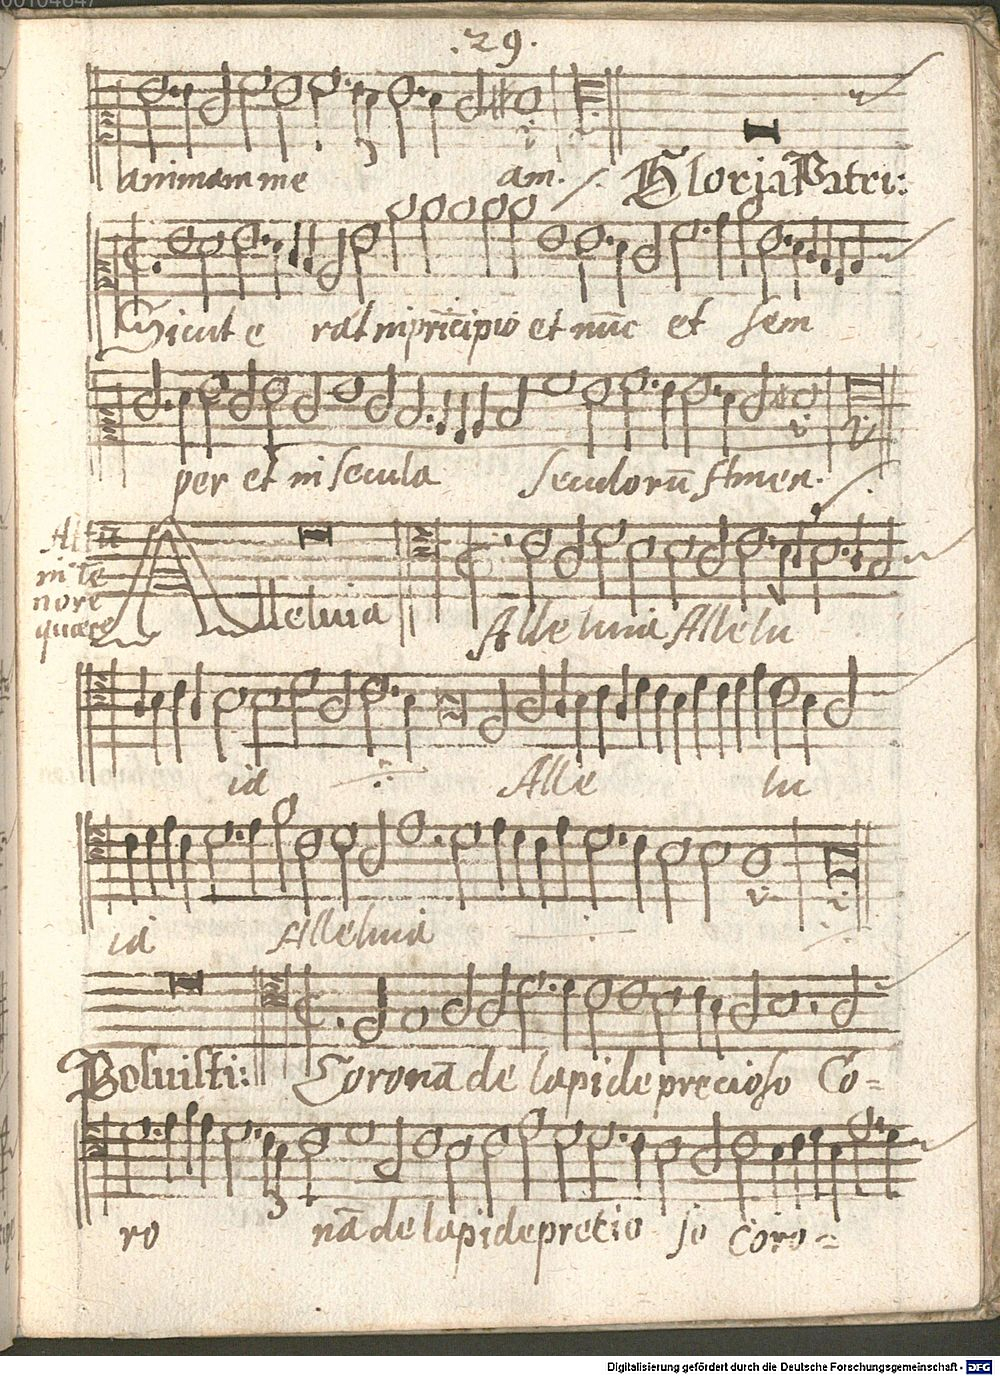 .29.
animam me am. Gloria Patri:
Sicut e rat in pri̅cipio et nu̅c et sem
per et in secula seculoru̅ Amen.
Altu̅
in te
nore
quære
Alleluia Alleluia Allelu
ia Alle lu
ia Alleluia
Posuisti: Corona̅ de lapide precioso Co=
ro na̅ de lapide precio so Coro=
Digitalisierung gefördert durch die Deutsche Forschungsgemeinschaft - DFG